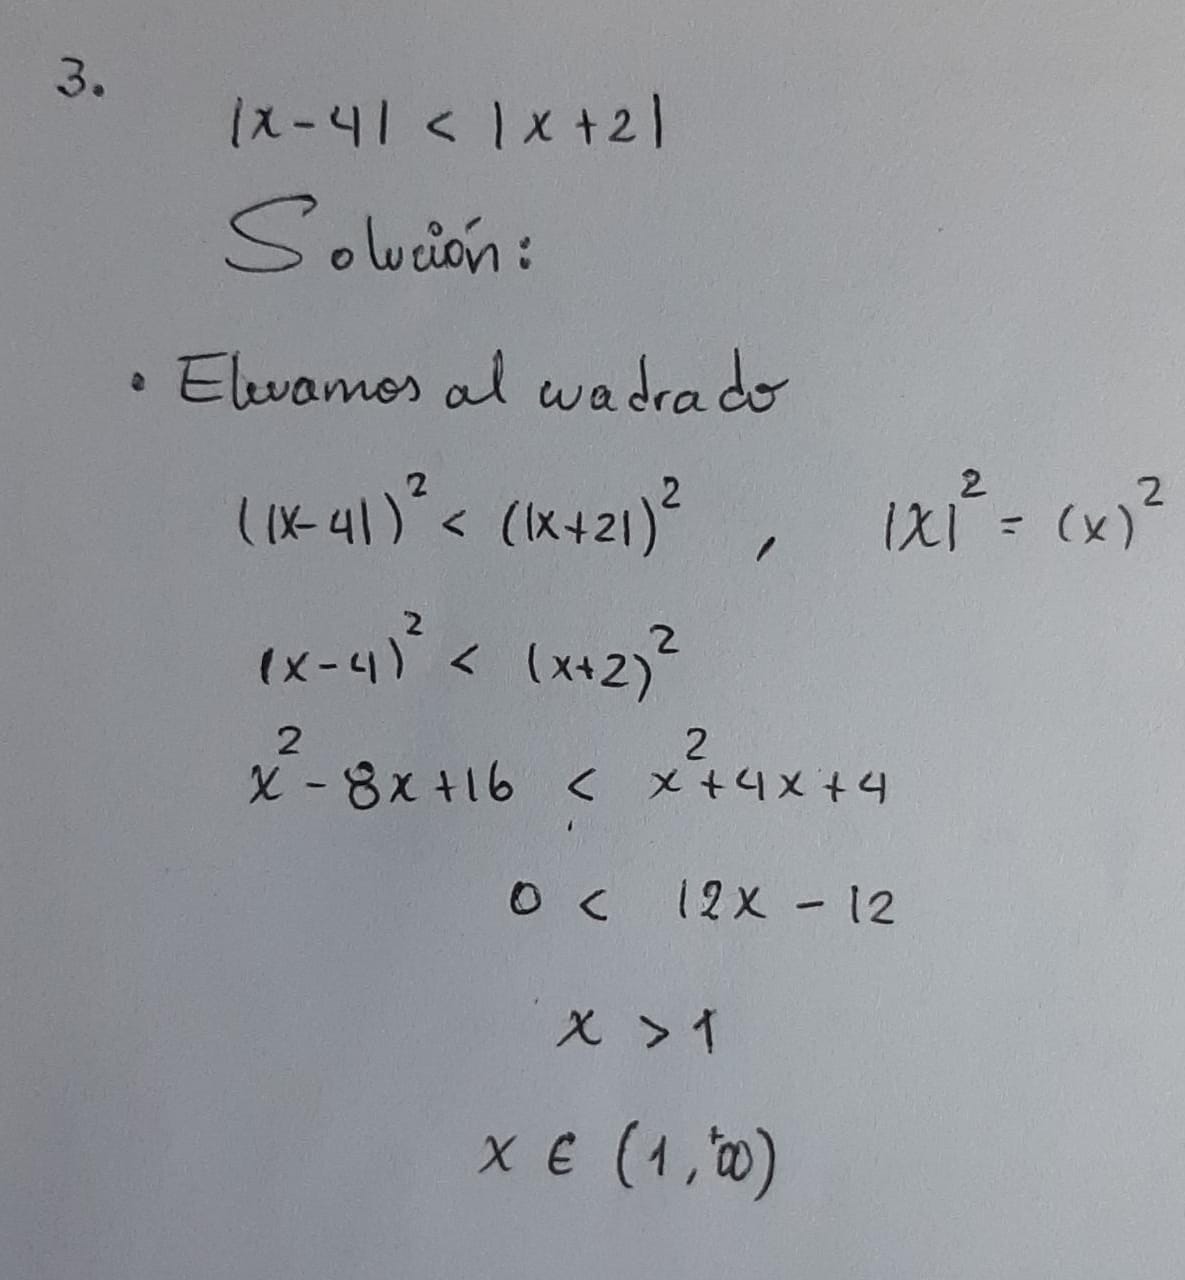 3.
|x-4| < |x+2|
Solución:
• Elevamos al cuadrado
(|x-4|)² < (|x+2|)² , |x|² = (x)²
(x-4)² < (x+2)²
x² - 8x + 16 < x² + 4x + 4
0 < 12x - 12
x > 1
x ∈ (1, +∞)